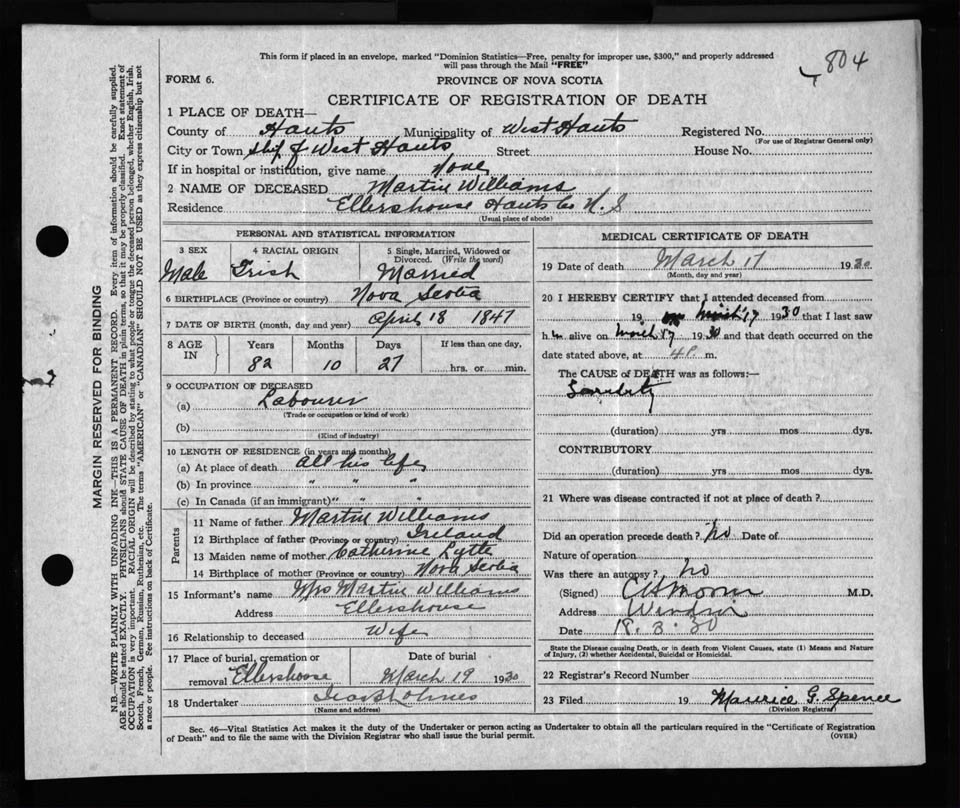 804
This form if placed in an envelope, marked "Dominion Statistics—Free, penalty for improper use, $300," and properly addressed
will pass through the Mail "FREE"
FORM 6.
PROVINCE OF NOVA SCOTIA
CERTIFICATE OF REGISTRATION OF DEATH
1 PLACE OF DEATH—
County of Hants Municipality of West Hants Registered No.
(For use of Registrar General only)
City or Town of West Hants Street House No.
If in hospital or institution, give name None
2 NAME OF DECEASED Martin Williams
Residence Ellershouse Hants Co N.S
(Usual place of abode)
PERSONAL AND STATISTICAL INFORMATION
3 SEX
4 RACIAL ORIGIN
5 Single, Married, Widowed or Divorced. (Write the word)
Male Irish Married
6 BIRTHPLACE (Province or country) Nova Scotia
7 DATE OF BIRTH (month, day and year) April 18 1847
8 AGE IN
Years Months Days If less than one day,
82 10 27 hrs. or min.
9 OCCUPATION OF DECEASED
(a) Labourer
(Trade or occupation or kind of work)
(b)
(Kind of industry)
10 LENGTH OF RESIDENCE (in years and months)
(a) At place of death all his life
(b) In province " " "
(c) In Canada (if an immigrant) " " "
Parents
11 Name of father Martin Williams
12 Birthplace of father (Province or country) Ireland
13 Maiden name of mother Catherine Lytle
14 Birthplace of mother (Province or country) Nova Scotia
15 Informant's name Mrs Martin Williams
Address Ellershouse
16 Relationship to deceased Wife
17 Place of burial, cremation or removal Ellershouse
Date of burial March 19 1930
18 Undertaker
(Name and address)
MEDICAL CERTIFICATE OF DEATH
19 Date of death March 17 1930
(Month, day and year)
20 I HEREBY CERTIFY that I attended deceased from
19 on March 17 1930 that I last saw
h m alive on March 17 1930 and that death occurred on the
date stated above, at 4P. m.
The CAUSE of DEATH was as follows:—
(duration) yrs mos dys.
CONTRIBUTORY
(duration) yrs mos dys.
21 Where was disease contracted if not at place of death?
Did an operation precede death? No Date of
Nature of operation
Was there an autopsy? no
(Signed) M.D.
Address Windsor
Date 18.3.30
State the Disease causing Death, or in death from Violent Causes, state (1) Means and Nature
of Injury, (2) whether Accidental, Suicidal or Homicidal.
22 Registrar's Record Number
23 Filed 19 Maurice G. Spence
(Division Registrar)
Sec. 46—Vital Statistics Act makes it the duty of the Undertaker or person acting as Undertaker to obtain all the particulars required in the "Certificate of Registration
of Death" and to file the same with the Division Registrar who shall issue the burial permit.
(OVER)
MARGIN RESERVED FOR BINDING
N.B.—WRITE PLAINLY WITH UNFADING INK—THIS IS A PERMANENT RECORD. Every item of information should be carefully supplied.
AGE should be stated EXACTLY. PHYSICIANS should STATE CAUSE OF DEATH in plain terms, so that it may be properly classified. Exact statement of
OCCUPATION is very important. RACIAL ORIGIN will be described by stating to what people or tongue the deceased person belonged, whether English, Irish,
Scotch, French, German, Russian, Ruthenian, etc. The terms "AMERICAN" or "CANADIAN" SHOULD NOT BE USED as they express citizenship but not
a race or people. See instructions on back of Certificate.